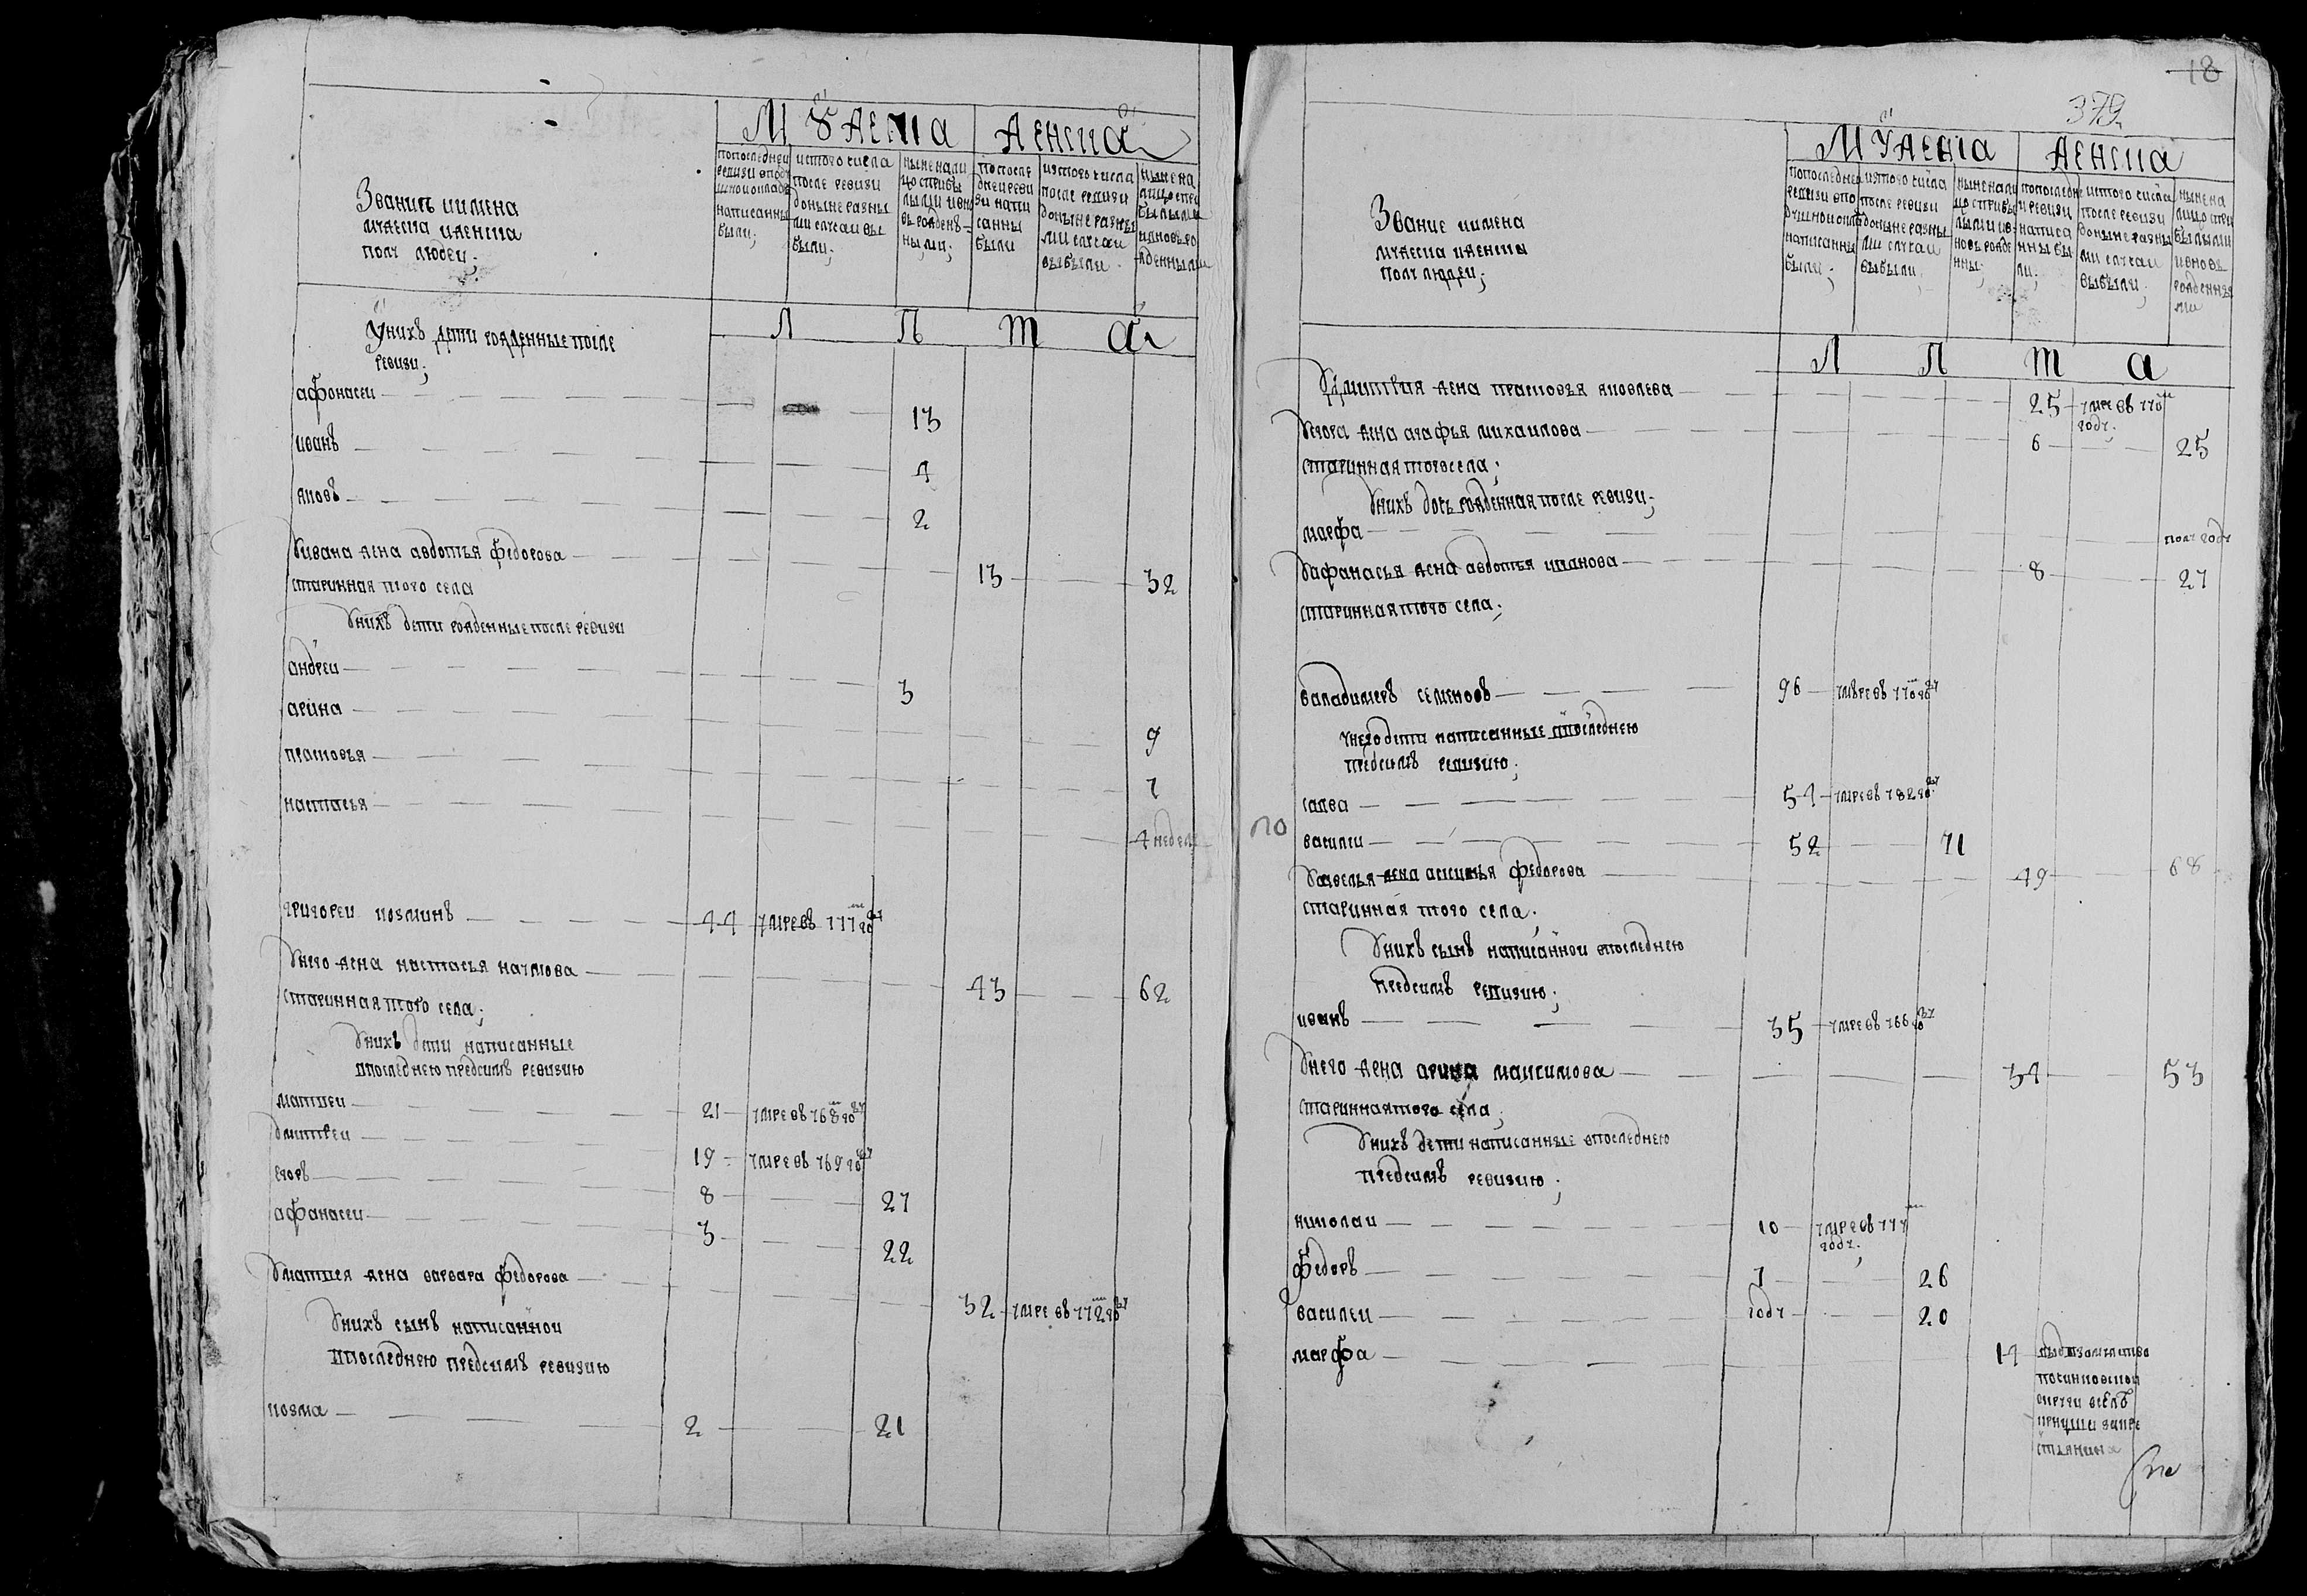 Звание иимена
мужеска иженска
полу людеи;
Мужеска
Женска
попоследнеи
ревизи вподу
шнои оклад
написанны
были;
истого числа
после ревизи
доныне разны
ми случаи вы
были;
ныне нали
цо сприбы
лыми ивно
вь рожден
ными;
попосле
днеи реви
зи напи
санны
были
изтого числа
после ревизи
доныне разны
ми случаи
выбыли
ныне на
лицо спри
былыми
ивновь ро
жденными
Л
Ѣ
т
а
Уних дети рожденные после
ревизи;
афонасеи 13
иванъ 4
яковъ 2
Уивана жена авдотья федорова 13 32
старинная того села
Уних дети рожденные после ревизи
андреи 3
арина 9
прасковья 7
настасья 4 недел
григореи козминъ 44 умре въ 777 году
Унего жена настасья наумова 43 62
старинная того села;
Уних дети написанные
впоследнею предсимъ ревизию
матвеи 21 умре въ 768 году
дмитреи 19 умре въ 769 году
егоръ 8 27
афанасеи 3 22
Уматвея жена варвара федорова 32 умре въ 772 году
Уних сынъ написаннои
впоследнею предсимъ ревизию
козма 2 21
18
379
Звание иимена
мужеска иженска
полу людеи;
Мужеска
Женска
попоследнеи
ревизи впо
душнои оклад
написанны
были;
изтого числа
после ревизи
доныне разны
ми случаи
выбыли
ныне нали
цо сприбы
лыми ив
новь рожде
нны;
попоследне
и ревизи
написа
нны бы
ли;
истого числа
после ревизи
доныне разны
ми случаи
выбыли;
ныне на
лицо спри
былыми
ивновь
рожденны
ми
Л
Ѣ
т
а
Удмитрия жена прасковья яковлева 25 умре въ 770
году;
Уегора жена агафья михаилова 6 25
старинная тогосела;
Уних дочь рожденная после ревизи;
марфа полугоду
Уафанасья жена авдотья иванова 8 27
старинная того села;
валадимеръ семеновъ 96 умре въ 770 году
унего дети написанные впоследнею
предсимъ ревизию;
савва 54 умре въ 782 году
по
василеи 52 71
Усавелья жена аксинья федорова 49 68
старинная того села.
Уних сынъ написаннои впоследнею
предсимъ ревизию;
иванъ 35 умре въ 766 году
Унего жена арина максимова 34 53
старинная того села;
Уних дети написанные впоследнею
предсимъ ревизию;
николаи 10 умре въ 777
году;
федоръ 7 26
василеи году 20
марфа 14
округи
крестьянина